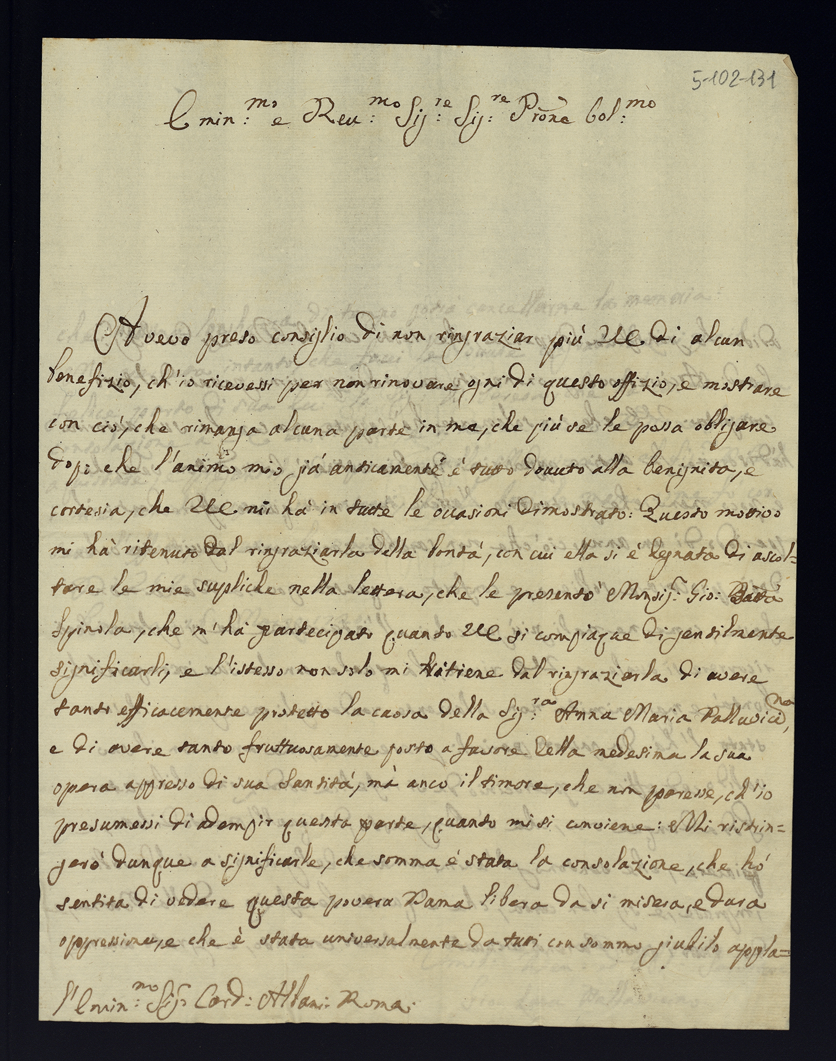 5-102-131
Emin:mo e Reu:mo Sig:re Sig:re Prōne Col:mo
Avevo preso consiglio di non ringraziar più VE di alcun
benefizio, ch'io ricevessi per non rinovare ogni dì questo offizio, e mostrare
con ciò, che rimanga alcuna parte in me, che più se le possa obligare
dopo che l'animo mio già anticamente è tutto dovuto alla benignità, e
cortesia, che VE mi hà in tutte le occasioni dimostrato: Questo mottivo
mi hà ritenuto dal ringraziarla della bontà, con cui ella si è degnata di ascol=
tare le mie supliche nella lettera, che le presentò Monsig:r Gio: Batta
Spinola, che m'hà partecipato quanto VE si compiaque di gentilmente
significarli, e l'istesso non solo mi ritiene dal ringraziarla di avere
tanto efficacemente protetto la causa della Sig:ra Anna Maria Pallavicina,
e di avere tanto fruttuosamente posto a favore della medesima la sua
opera appresso di sua Santità, mà anco il timore, che non paresse, ch'io
presumessi di adempir questa parte, quanto mi si conviene: Mi ristrin=
gerò dunque a significarle, che somma è stata la consolazione, che hò
sentita di vedere questa povera Dama libera da si misera, e dura
oppressione, e che è stata universalmente da tutti con sommo giubilo appla=
S.r Emin:mo Sig:r Card: Albani Roma: